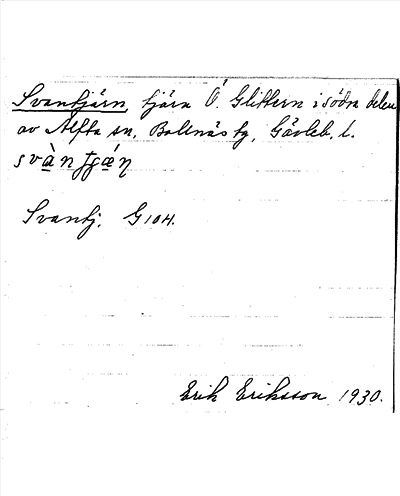 Svantjärn, tjärn Ö. Glittern i södra delen
av Alfta sn, Bollnäs tg, Gävleb. l.
Svantj. G10H.
Erik Eriksson 1930.